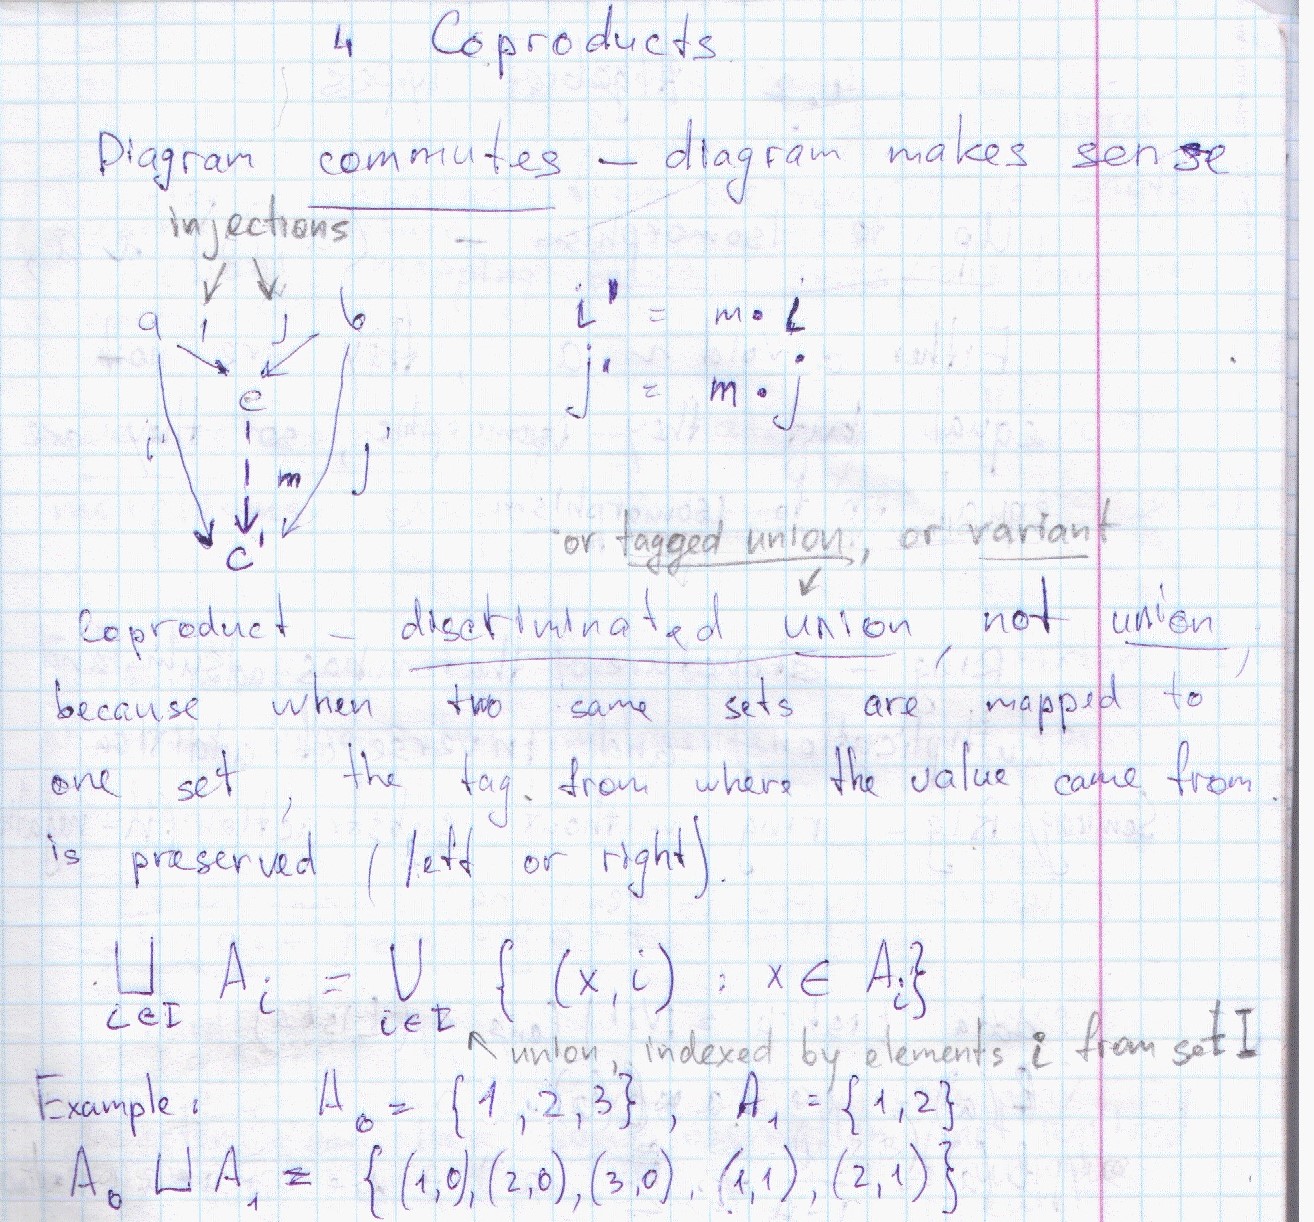 4 Coproducts
Diagram commutes – diagram makes sense
injections
a i j b
i' = m • i
j' = m • j
c
i' m j'
c'
or tagged union, or variant
Coproduct – discriminated union, not union,
because when two same sets are mapped to
one set, the tag from where the value came from
is preserved (left or right).
⨆ A_i = ⋃ { (x, i) : x ∈ A_i}
i∈I i∈I
union, indexed by elements i from set I
Example: A_0 = {1, 2, 3}, A_1 = {1, 2}
A_0 ⊔ A_1 = {(1,0), (2,0), (3,0), (1,1), (2,1)}